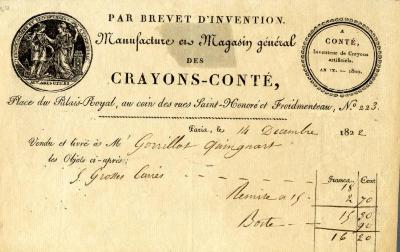 PAR BREVET D'INVENTION.
Manufacture et Magasin général
DES
CRAYONS-CONTÉ,
A
CONTÉ,
Inventeur de Crayons
artificiels.
AN IX. — 1800.
Place du Palais-Royal, au coin des rues Saint-Honoré et Froidmenteau, N.º 223.
Paris, le 14 Decembre 1822
Vendu et livré à M.r
les Objets ci-après:
Francs. Cent.
Grosses 18
Remise a 15. 2 70
15 30
Boite 90
16 20